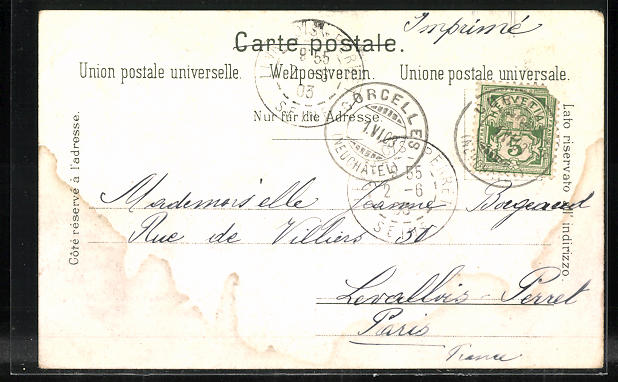 Imprimé
Carte postale.
Union postale universelle. Weltpostverein. Unione postale universale.
Nur für die Adresse.
Côté réservé à l'adresse.
Lato riservato all' indirizzo.
HELVETIA
5
CORCELLES
1.VI.03
(NEUCHÂTEL)
55
03
PERRET
55
2 - 6
03
SEINE
Mademoiselle Jeanne
Rue de Villiers
Levallois-Perret
Paris
France